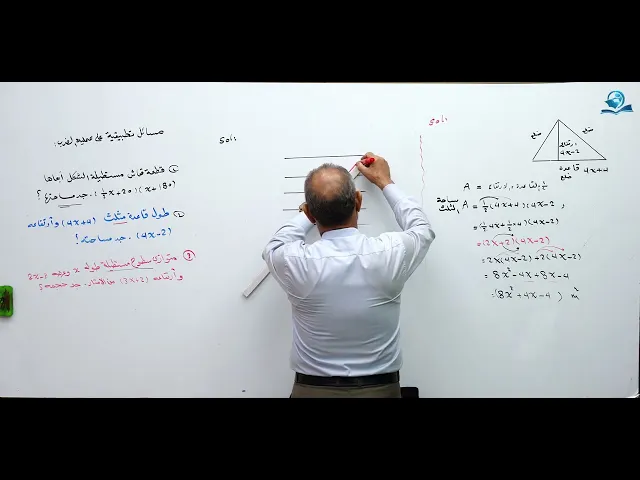 مسائل تطبيقية على جميع الضرب:
① قطعة قماش مستطيلة الشكل ابعادها
(x+180) (½x+20). جد مساحتها؟
② طول قاعدة مثلث (4x+4) وأرتفاعه
(4x-2). جد مساحته؟
③ متوازي سطوح مستطيلة طوله x وعرضه 3x-1
وأرتفاعه (3x+2) من الأمتار. جد حجمه؟
Sol:
Sol:
ضلع
ضلع
ارتفاع
4x-2
قاعدة 4x+4
ضلع
A = ½ القاعدة × الارتفاع
مساحة المثلث A = ½(4x+4)(4x-2)
= (½·4x+½×4)(4x-2)
= (2x+2)(4x-2)
= 2x(4x-2)+2(4x-2)
= 8x²-4x+8x-4
= (8x²+4x-4) m²